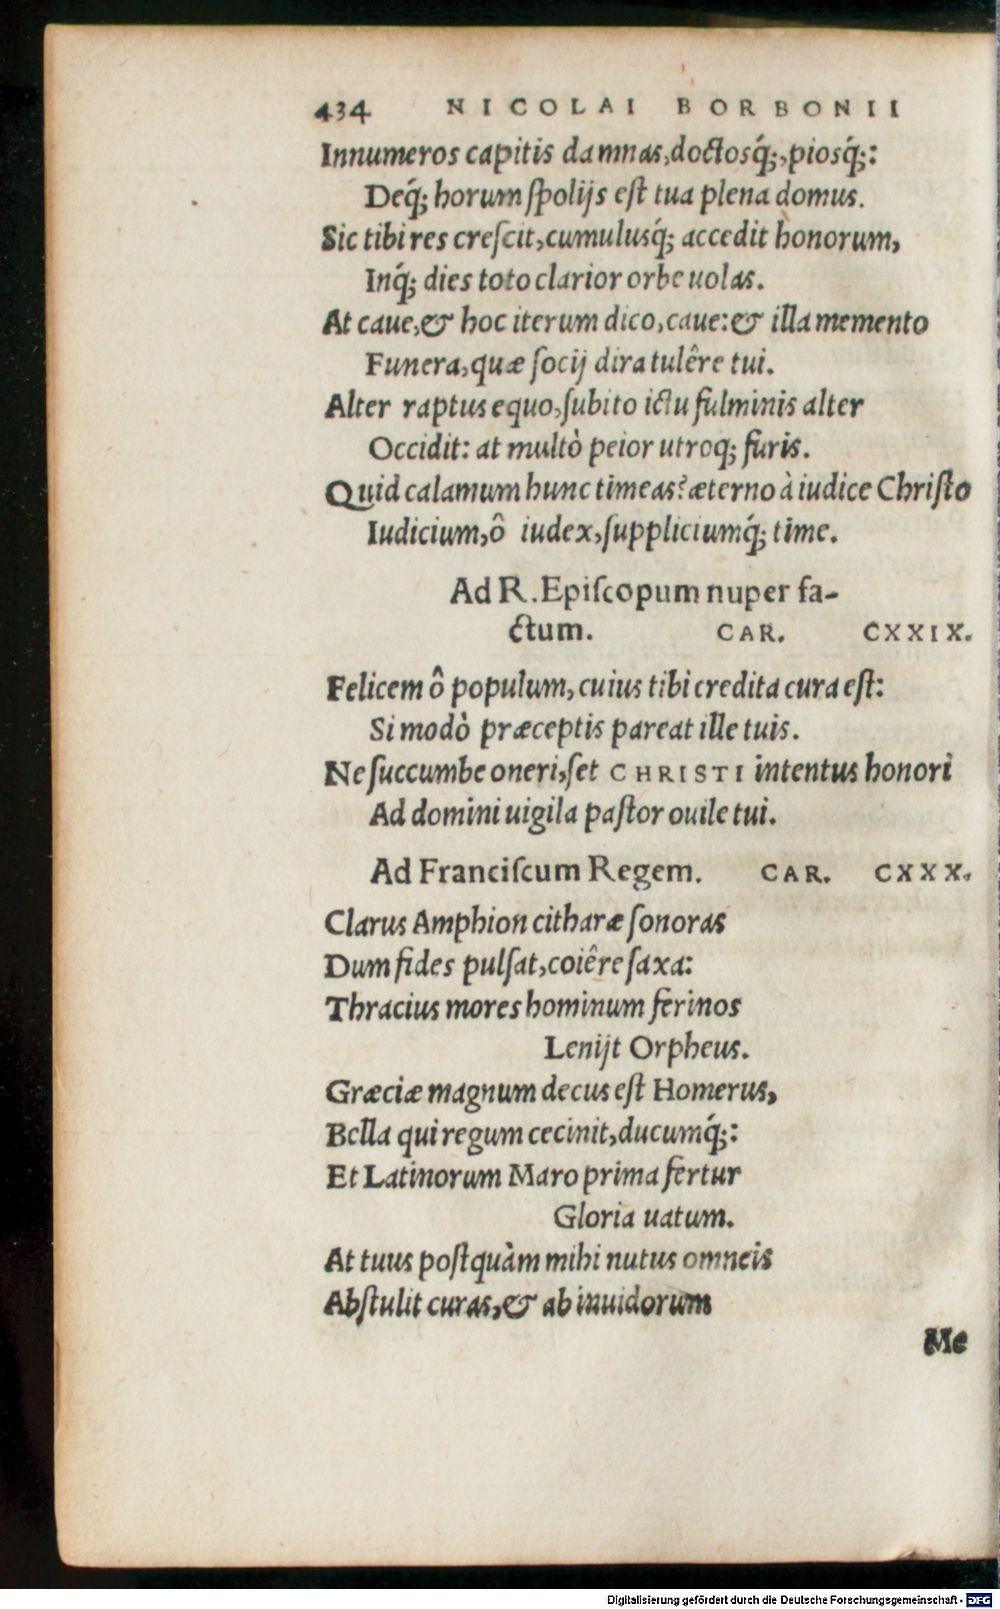 434 NICOLAI BORBONII
Innumeros capitis damnas, doctosq́;, piosq́;:
Deq́; horum ſpolijs eſt tua plena domus.
Sic tibi res creſcit, cumulusq́; accedit honorum,
Inq́; dies toto clarior orbe uolas.
At caue, & hoc iterum dico, caue: & illa memento
Funera, quæ ſocij dira tulêre tui.
Alter raptus equo, ſubito ictu fulminis alter
Occidit: at multò peior utroq; furis.
Quid calamum hunc timeas? æterno à iudice Chriſto
Iudicium, ô iudex, ſuppliciumq́; time.
Ad R. Epiſcopum nuper fa-
ctum. CAR. CXXIX.
Felicem ô populum, cuius tibi credita cura eſt:
Si modò præceptis pareat ille tuis.
Ne ſuccumbe oneri, ſet CHRISTI intentus honori
Ad domini uigila paſtor ouile tui.
Ad Franciſcum Regem. CAR. CXXX.
Clarus Amphion citharæ ſonoras
Dum fides pulſat, coiêre ſaxa:
Thracius mores hominum ferinos
Lenijt Orpheus.
Græciæ magnum decus eſt Homerus,
Bella qui regum cecinit, ducumq́;:
Et Latinorum Maro prima fertur
Gloria uatum.
At tuus poſtquàm mihi nutus omneis
Abſtulit curas, & ab inuidorum
Me
Digitalisierung gefördert durch die Deutsche Forschungsgemeinschaft - DFG